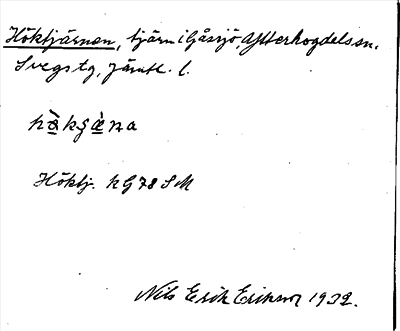 Höktjärnen, tjärn i Gåssjö, Ytterhogdals sn.
Svegs tg, Jämtl. l.
Höktj. k G 78 S M
Nils Erik Erikson 1932.